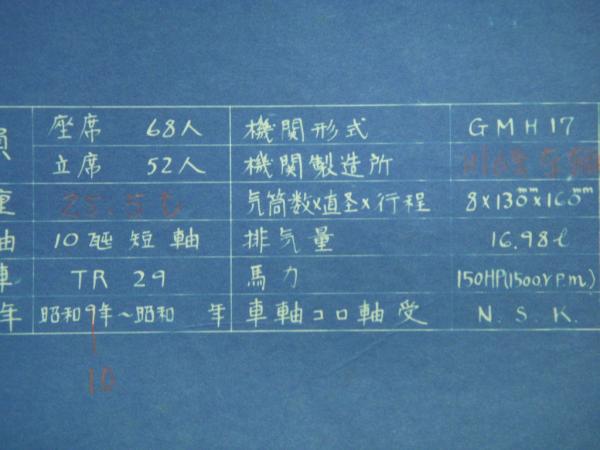 員 座席 68人 機関形式 GMH17
立席 52人 機関製造所
25.5t 気筒数×直圣×行程 8×130mm×160mm
軸 10瓲短軸 排気量 16.98ℓ
車 TR 29 馬力 150HP(1500r.p.m)
年 昭和9年~昭和 年 車軸コロ軸受 N.S.K.
10